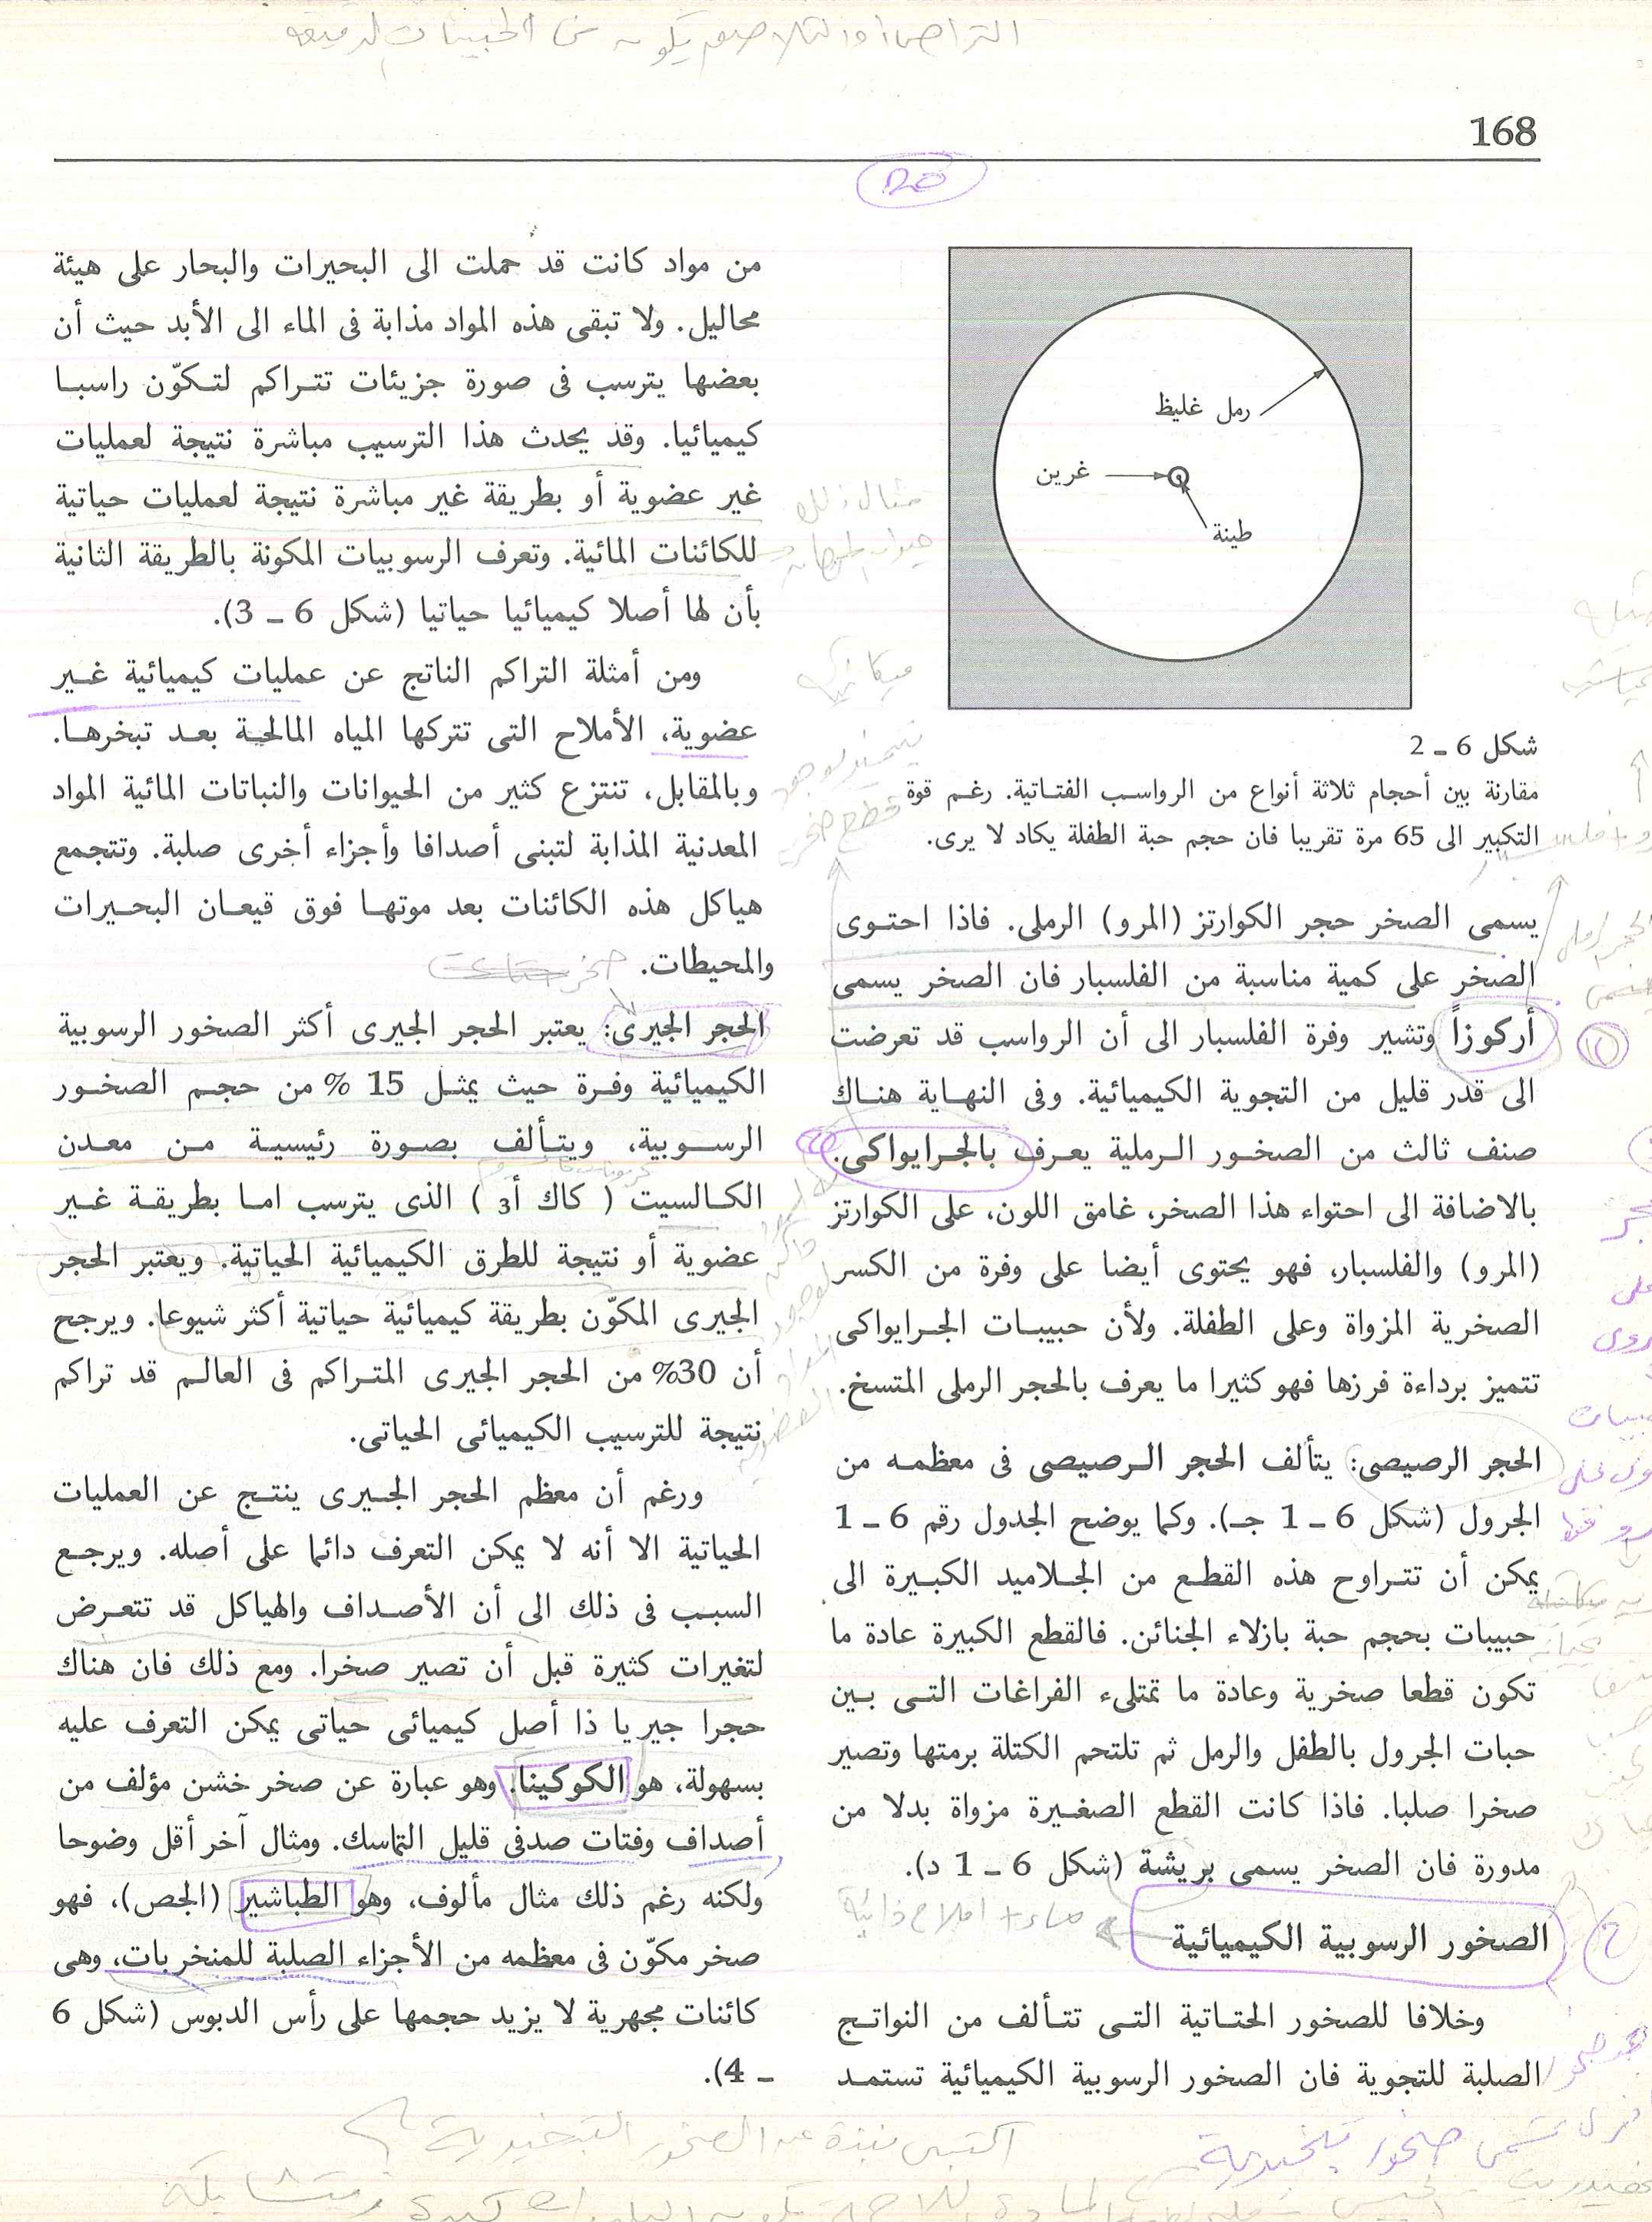 168
رمل غليظ
غرين
طينة
شكل 6 ـ 2
مقارنة بين أحجام ثلاثة أنواع من الرواسب الفتاتية. رغم قوة
التكبير الى 65 مرة تقريبا فان حجم حبة الطفلة يكاد لا يرى.
يسمى الصخر حجر الكوارتز (المرو) الرملى. فاذا احتوى
الصخر على كمية مناسبة من الفلسبار فان الصخر يسمى
أركوزاً وتشير وفرة الفلسبار الى أن الرواسب قد تعرضت
الى قدر قليل من التجوية الكيميائية. وفى النهاية هناك
صنف ثالث من الصخور الرملية يعرف بالجرايواكى.
بالاضافة الى احتواء هذا الصخر، غامق اللون، على الكوارتز
(المرو) والفلسبار، فهو يحتوى أيضا على وفرة من الكسر
الصخرية المزواة وعلى الطفلة. ولأن حبيبات الجرايواكى
تتميز برداءة فرزها فهو كثيرا ما يعرف بالحجر الرملى المتسخ.
الحجر الرصيصى: يتألف الحجر الرصيصى فى معظمه من
الجرول (شكل 6 ـ 1 جـ). وكما يوضح الجدول رقم 6 ـ 1
يمكن أن تتراوح هذه القطع من الجلاميد الكبيرة الى
حبيبات بحجم حبة بازلاء الجنائن. فالقطع الكبيرة عادة ما
تكون قطعا صخرية وعادة ما تمتلىء الفراغات التى بين
حبات الجرول بالطفل والرمل ثم تلتحم الكتلة برمتها وتصير
صخرا صلبا. فاذا كانت القطع الصغيرة مزواة بدلا من
مدورة فان الصخر يسمى بريشة (شكل 6 ـ 1 د).
الصخور الرسوبية الكيميائية
ماء + املاح ذائبة
وخلافا للصخور الحتاتية التى تتألف من النواتج
الصلبة للتجوية فان الصخور الرسوبية الكيميائية تستمد
من مواد كانت قد حملت الى البحيرات والبحار على هيئة
محاليل. ولا تبقى هذه المواد مذابة فى الماء الى الأبد حيث أن
بعضها يترسب فى صورة جزيئات تتراكم لتكوّن راسبا
كيميائيا. وقد يحدث هذا الترسيب مباشرة نتيجة لعمليات
غير عضوية أو بطريقة غير مباشرة نتيجة لعمليات حياتية
للكائنات المائية. وتعرف الرسوبيات المكونة بالطريقة الثانية
بأن لها أصلا كيميائيا حياتيا (شكل 6 ـ 3).
ومن أمثلة التراكم الناتج عن عمليات كيميائية غير
عضوية، الأملاح التى تتركها المياه المالحة بعد تبخرها.
وبالمقابل، تنتزع كثير من الحيوانات والنباتات المائية المواد
المعدنية المذابة لتبنى أصدافا وأجزاء أخرى صلبة. وتتجمع
هياكل هذه الكائنات بعد موتها فوق قيعان البحيرات
والمحيطات.
الحجر الجيرى: يعتبر الحجر الجيرى أكثر الصخور الرسوبية
الكيميائية وفرة حيث يمثل 15 % من حجم الصخور
الرسوبية، ويتألف بصورة رئيسية من معدن
الكالسيت ( كاك أ3 ) الذى يترسب اما بطريقة غير
عضوية أو نتيجة للطرق الكيميائية الحياتية. ويعتبر الحجر
الجيرى المكوّن بطريقة كيميائية حياتية أكثر شيوعا. ويرجح
أن 30% من الحجر الجيرى المتراكم فى العالم قد تراكم
نتيجة للترسيب الكيميائى الحياتى.
ورغم أن معظم الحجر الجيرى ينتج عن العمليات
الحياتية الا أنه لا يمكن التعرف دائما على أصله. ويرجع
السبب فى ذلك الى أن الأصداف والهياكل قد تتعرض
لتغيرات كثيرة قبل أن تصير صخرا. ومع ذلك فان هناك
حجرا جيريا ذا أصل كيميائى حياتى يمكن التعرف عليه
بسهولة، هو الكوكينا. وهو عبارة عن صخر خشن مؤلف من
أصداف وفتات صدفى قليل التماسك. ومثال آخر أقل وضوحا
ولكنه رغم ذلك مثال مألوف، وهو الطباشير (الجص)، فهو
صخر مكوّن فى معظمه من الأجزاء الصلبة للمنخربات، وهى
كائنات مجهرية لا يزيد حجمها على رأس الدبوس (شكل 6
ـ 4).
اكتبى نبذة عن الصخور التبخيرية